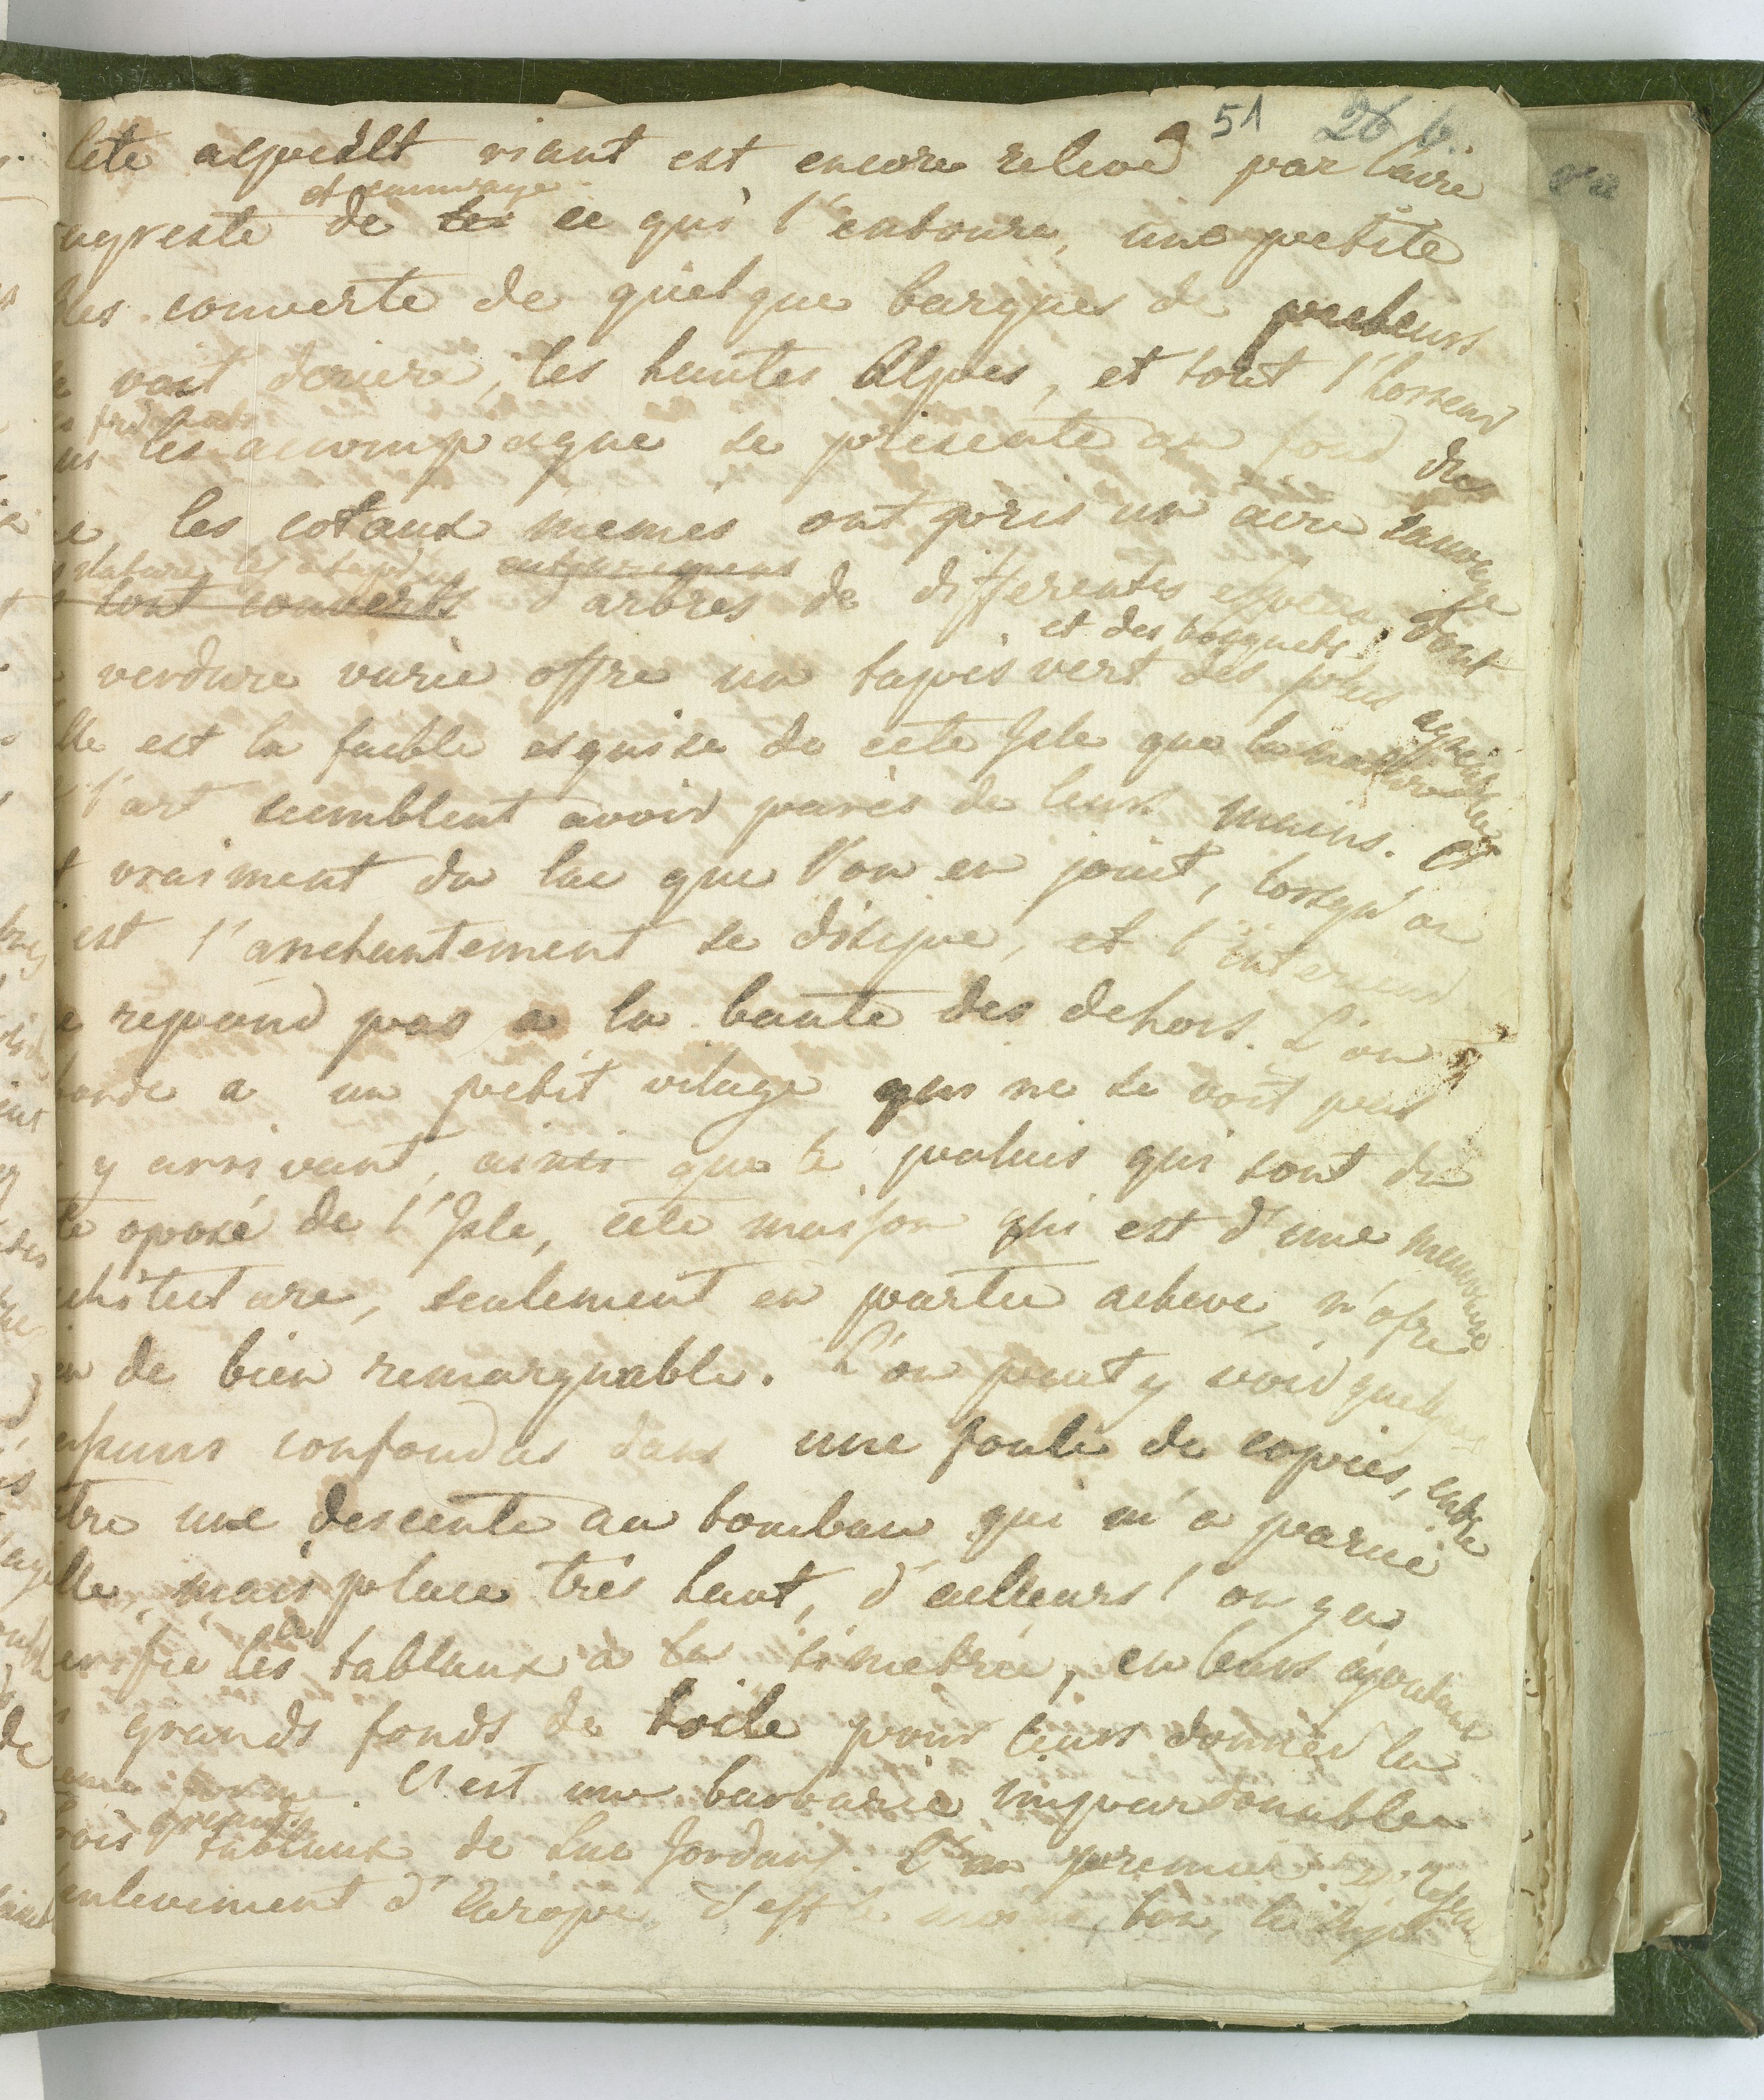 51 26 6.
cete aspeckt riant est encore relevé par l'aire
et sauvage
agreste de les ce qui l'entoure, une petite
Isles couverte de quelque barques de pecheurs
se voit deriere, les hautes Alpes, et tout l'horreur
qui les accompagne se présente au fond du
les cotaux memes ont pris un aire sauvage
nature les a
entouremens
sont couverts d'arbres de differentes especes dont
et des bosquets
la verdure varié offre un tapis vert des plus agreables
elle est la faible esquise de cete Isle que la nature
et l'art semblent avoir parés de leurs mains. C'est
vraiment du lac que l'on en jouit, lorsqu'on
y est l'anchantement se disipe, et l'interieur
ne repond pas a la bauté des dehors. L'on
aborde a un petit vilage qui ne se voit pas
en y arrivant, ainsi que le palais qui sont du
coté oposé de l'Isle, cete maison qui est d'une mauvaise
architecture, seulement en partie acheve, n'ofre
rien de bien remarquable. L'on peut y voir quelques
confondus dans une foule de copies, entre
autre une descente au tombeau qui m'a parue
belle, mais place très haut, d'ailleurs l'on y a
sacrifié les tableaux à la simetrie, en leurs ajoutant
des grands fonds de toile pour leurs donner la
meme forme. C'est une barbarie impardonnable
grands
trois tableaux de Luc Jordans. L'un premier
l'enlevement d'Europe, c'est le moins bon, le sujet